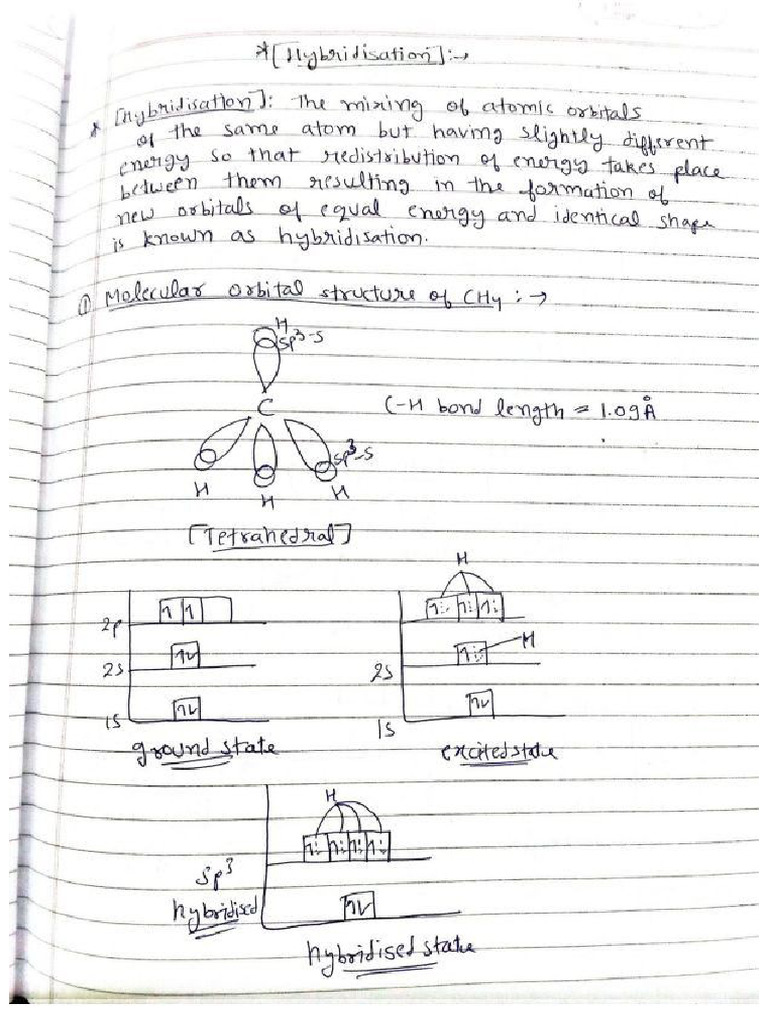 *[Hybridisation]:→
* [Hybridisation]: The mixing of atomic orbitals
of the same atom but having slightly different
energy so that redistribution of energy takes place
between them resulting in the formation of
new orbitals of equal energy and identical shape
is known as hybridisation.
① Molecular orbital structure of CH4 : →
H
sp³-s
C
C-H bond length = 1.09Å
sp³-s
H H H
[Tetrahedral]
H
2p
H
2s 2s
1s 1s
ground state excited state
H
Sp³
hybridised
hybridised state